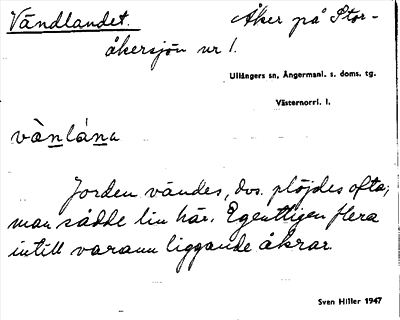 Vändlandet. Åker på Stor-
åkersjön nr 1.
Ullångers sn, Ångermanl. s. doms. tg.
Västernorrl. l.
vànlána
Jorden vändes, dvs. plöjdes ofta;
man sådde lin här. Egentligen flera
intill varann liggande åkrar.
Sven Hiller 1947